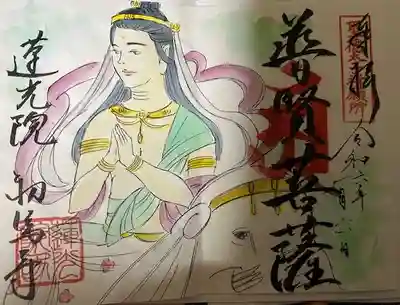 奉拝
令和六年
月六日
普賢菩薩
蓮光院 初馬寺